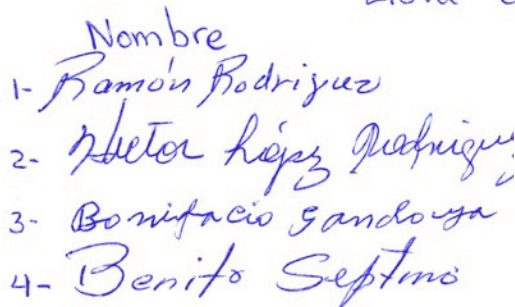 Nombre
1- Ramón Rodriguez
2- Hector López Rodriguez
3- Bonifacio Sandoya
4- Benito Septmo